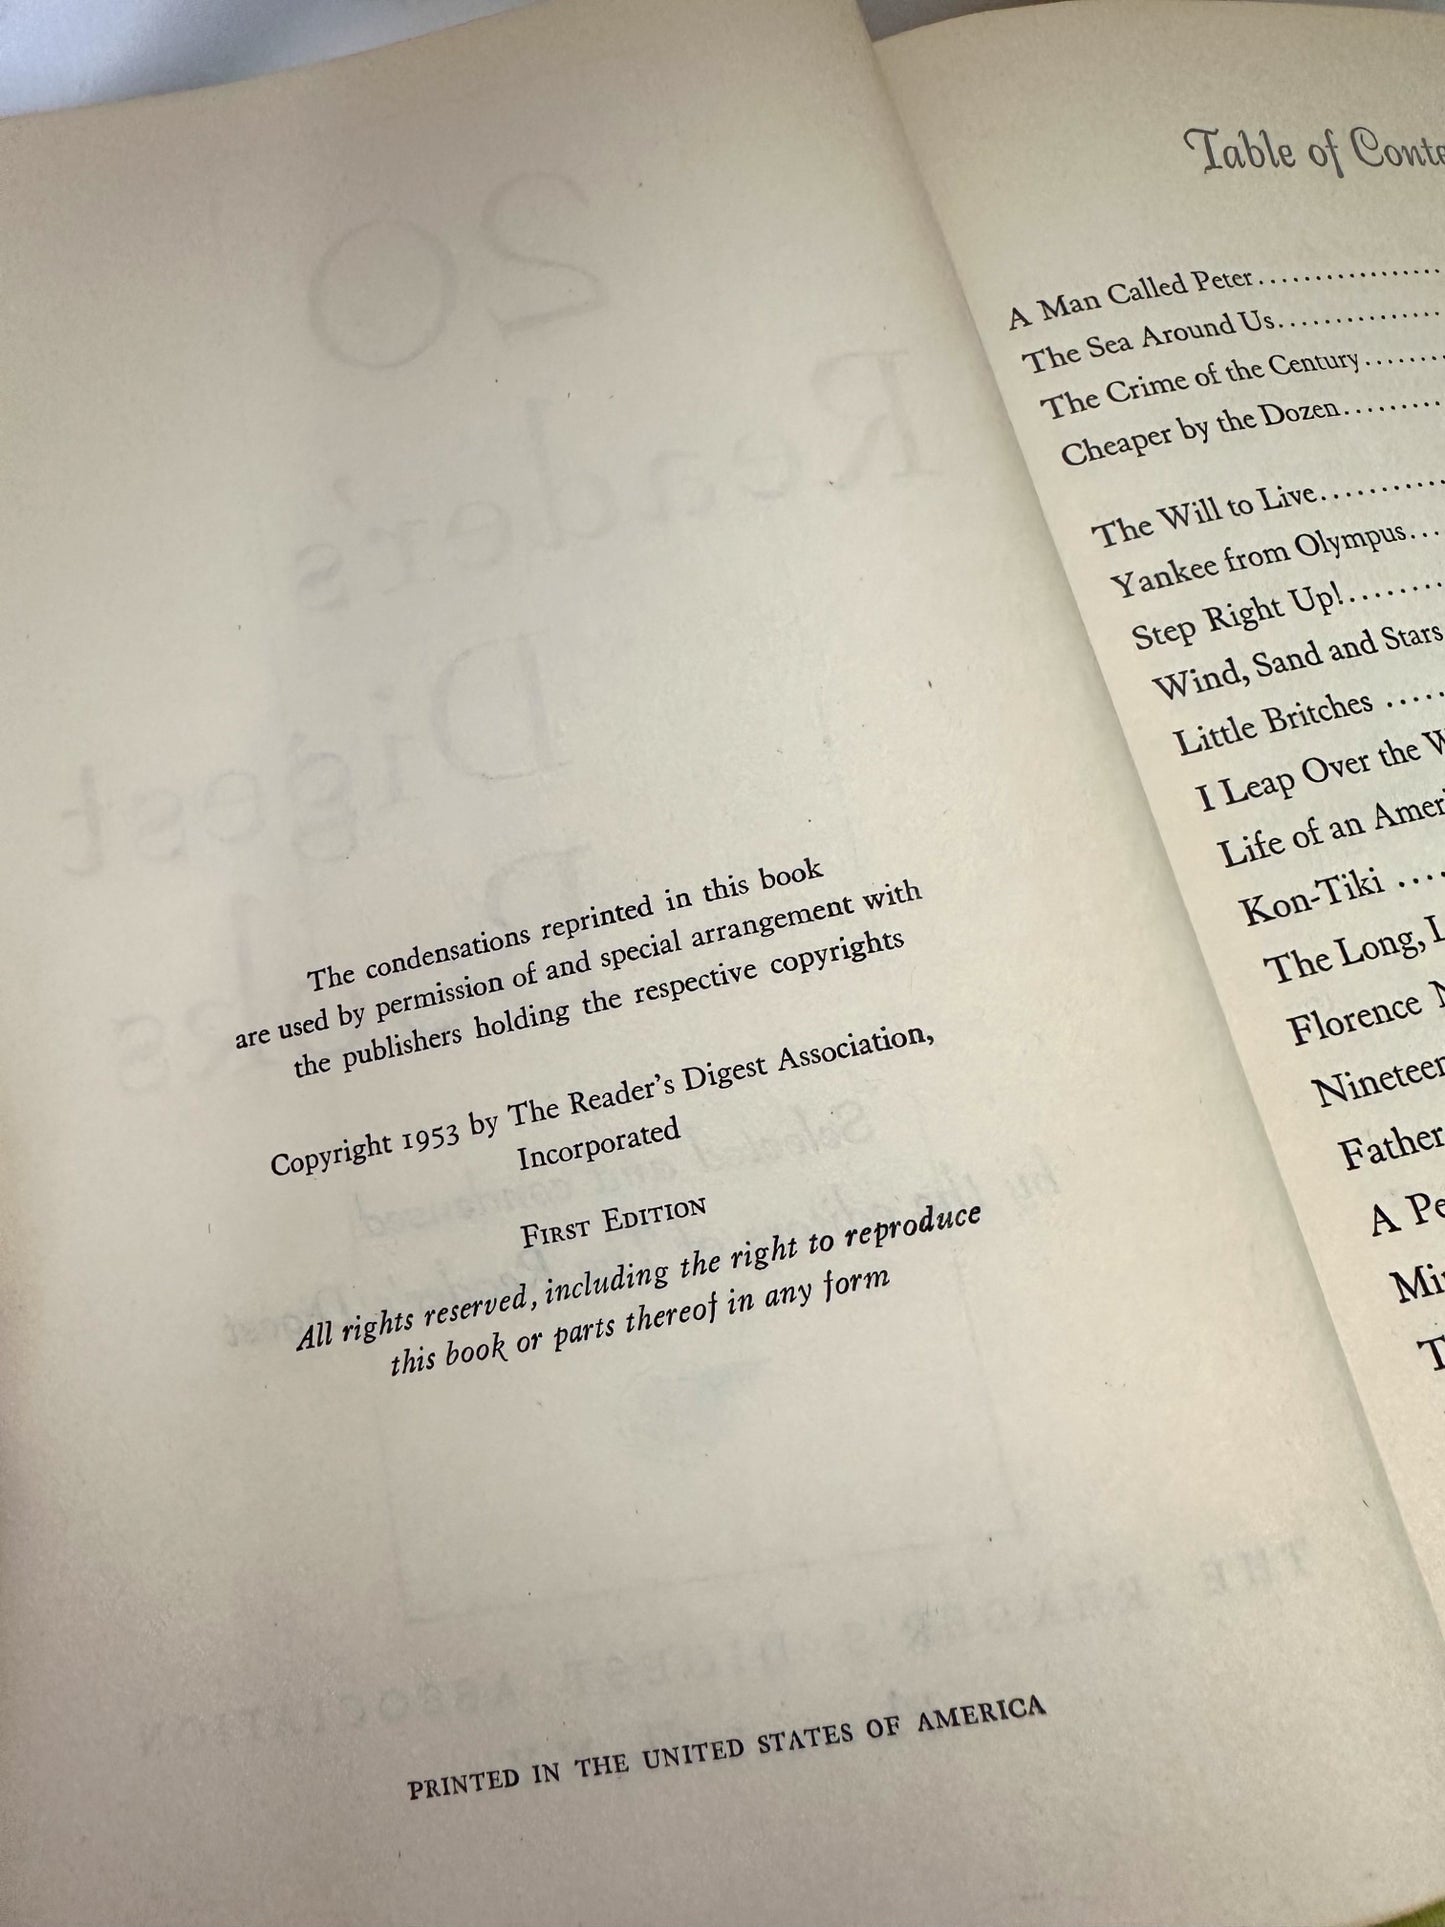 The condensations reprinted in this book
are used by permission of and special arrangement with
the publishers holding the respective copyrights
Copyright 1953 by The Reader's Digest Association,
Incorporated
First Edition
All rights reserved, including the right to reproduce
this book or parts thereof in any form
PRINTED IN THE UNITED STATES OF AMERICA
Table of
A Man Called Peter..................
The Sea Around Us...............
The Crime of the Century........
Cheaper by the Dozen.........
The Will to Live...........
Yankee from Olympus...
Step Right Up!........
Wind, Sand and Stars
Little Britches .....
I Leap Over the
Life of an
Kon-Tiki ....
The Long,
Florence
Father
A